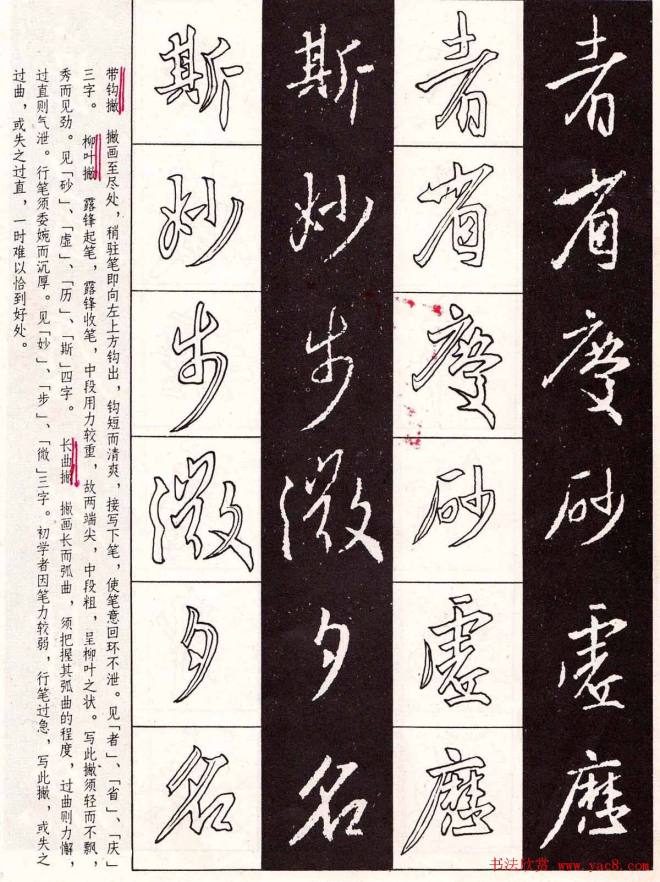 者
省
慶
砂
虛
歷
者
省
慶
砂
虛
歷
斯
妙
步
微
夕
名
斯
妙
步
微
夕
名
带钩撇 撇画至尽处，稍驻笔即向左上方钩出，钩短而清爽，接写下笔，使笔意回环不泄。见「者」、「省」、「庆」
三字。 柳叶撇 露锋起笔，露锋收笔，中段用力较重，故两端尖，中段粗，呈柳叶之状。写此撇须轻而不飘，
秀而见劲。见「砂」、「虚」、「历」、「斯」四字。 长曲撇 撇画长而弧曲，须把握其弧曲的程度，过曲则力懈，
过直则气泄。行笔须委婉而沉厚。见「妙」、「步」、「微」三字。初学者因笔力较弱，行笔过急，写此撇，或失之
过曲，或失之过直，一时难以恰到好处。
书法欣赏 www.yac8.com